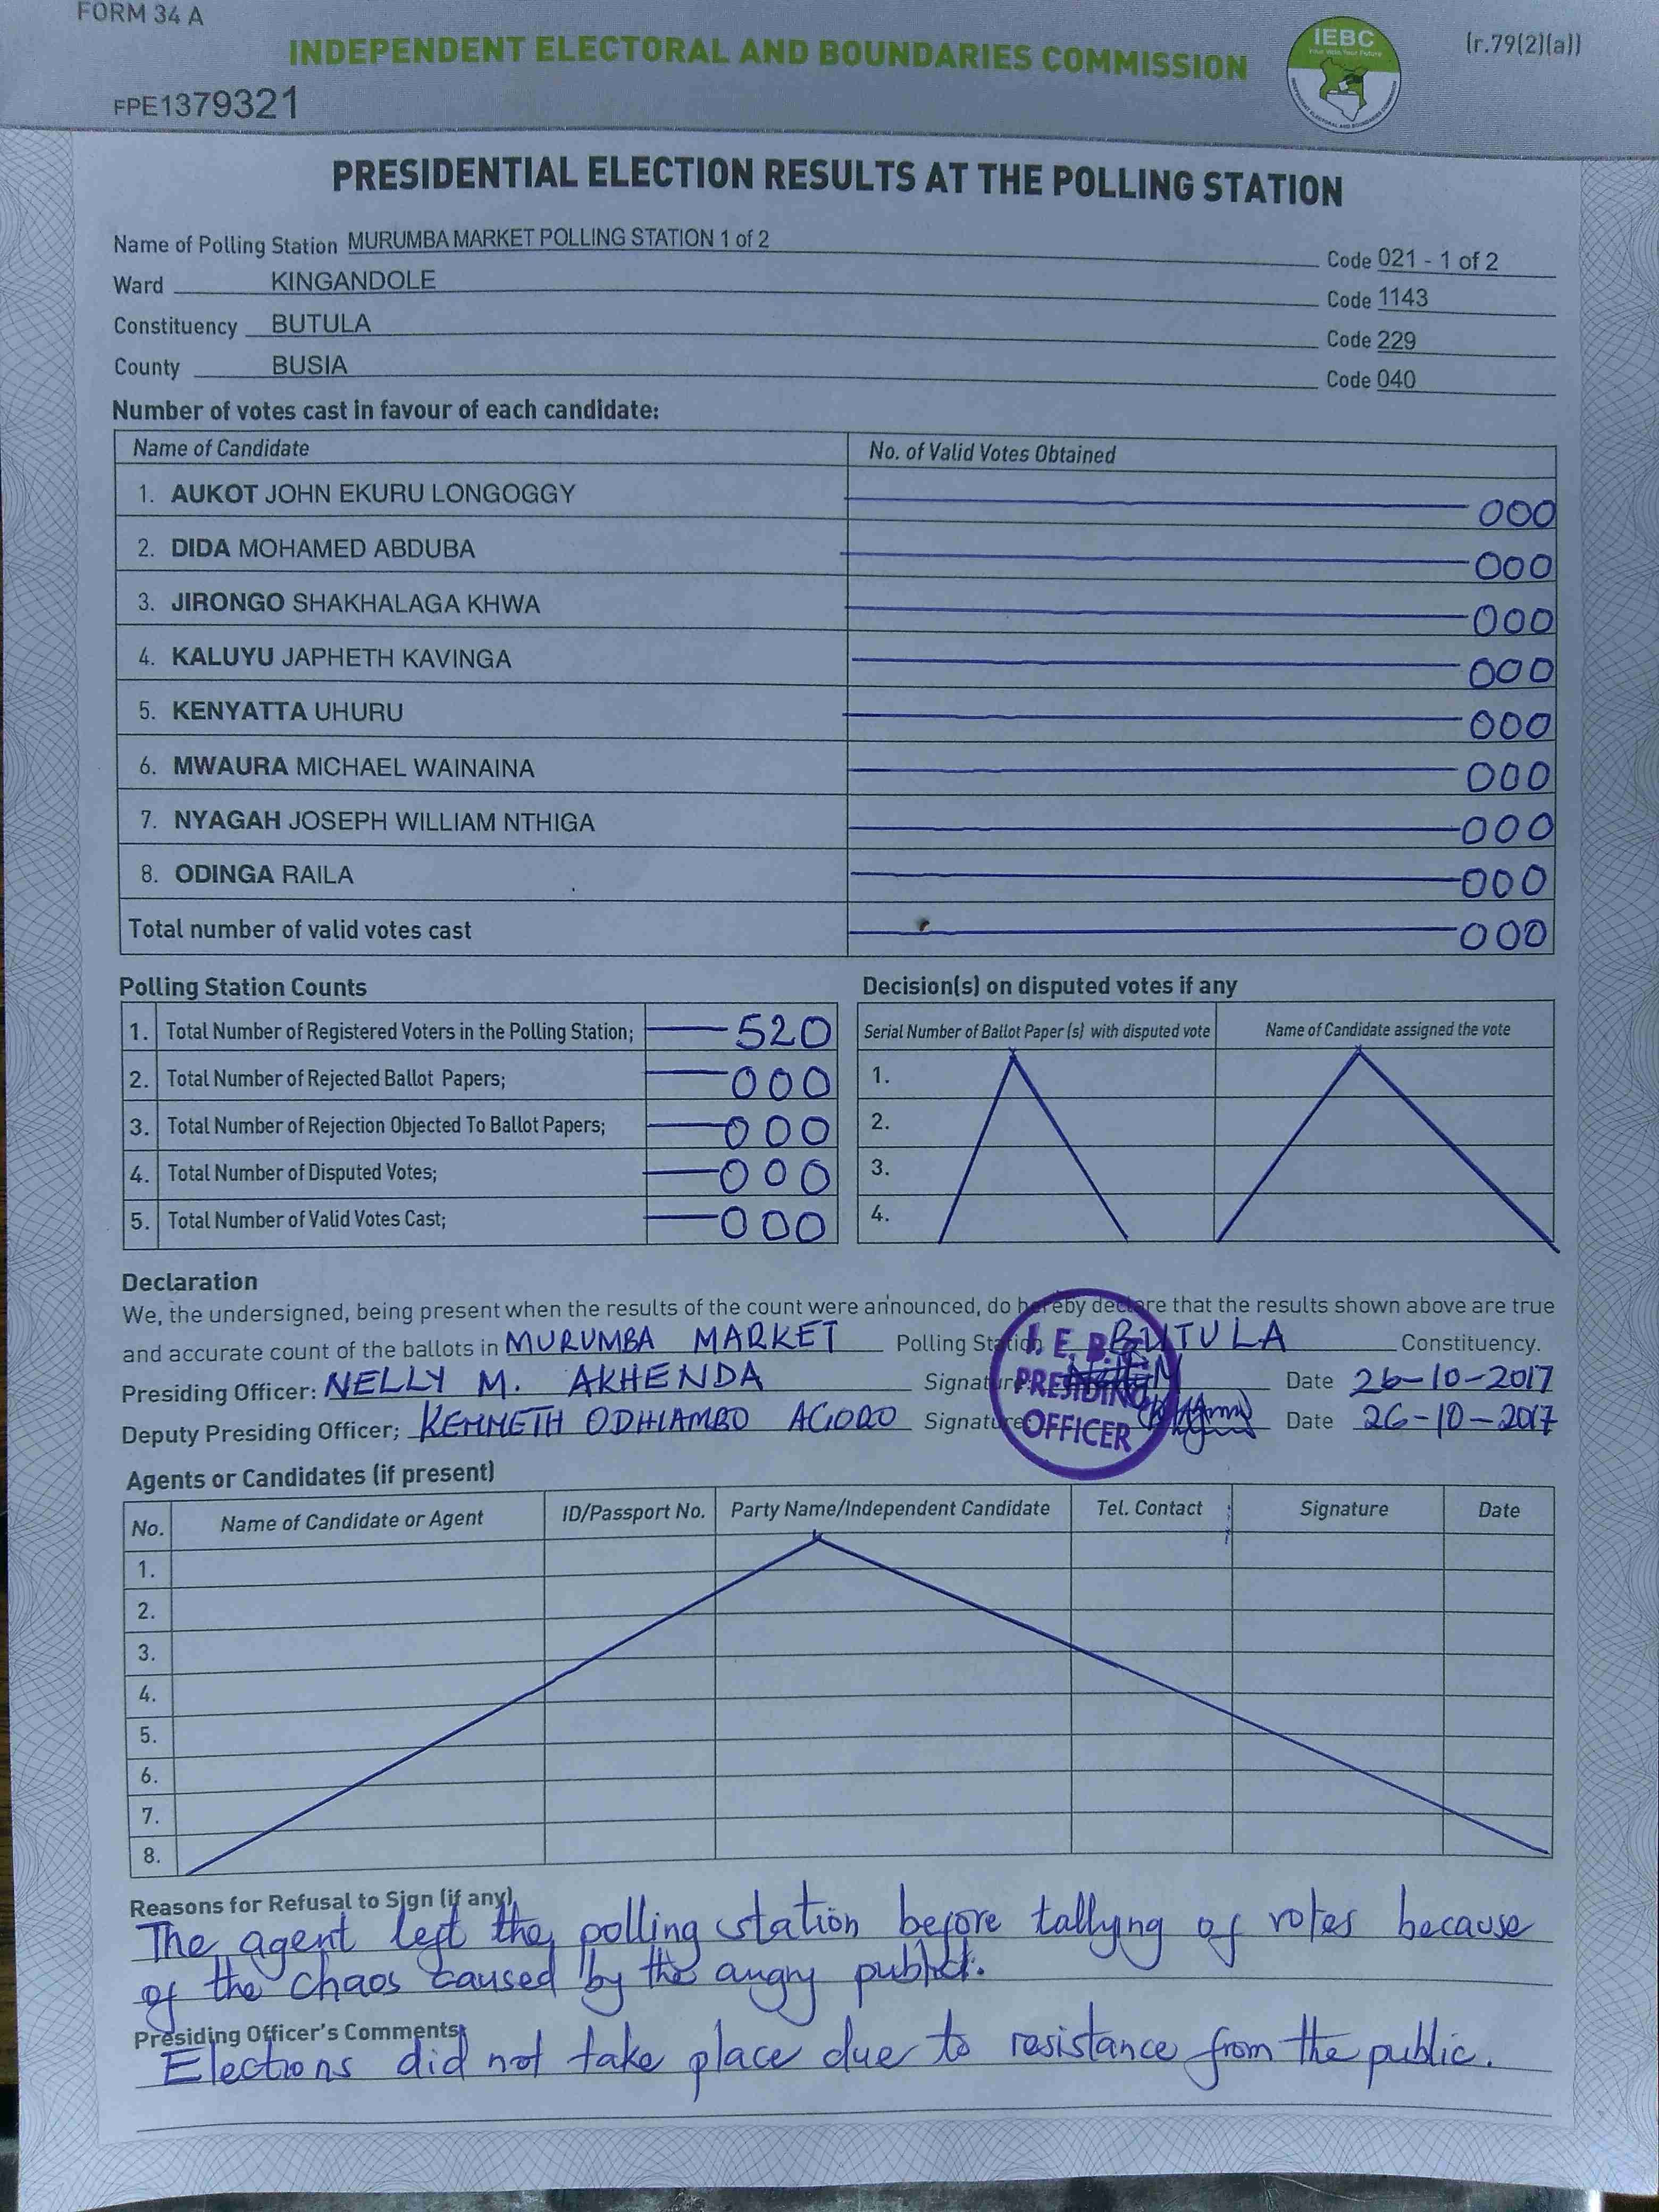 FORM 34 A
INDEPENDENT ELECTORAL AND BOUNDARIES COMMISSION
IEBC
(r.79(2)(a))
FPE1379321
PRESIDENTIAL ELECTION RESULTS AT THE POLLING STATION
Name of Polling Station MURUMBA MARKET POLLING STATION 1 of 2 Code 021 - 1 of 2
Ward KINGANDOLE Code 1143
Constituency BUTULA Code 229
County BUSIA Code 040
Number of votes cast in favour of each candidate:
Name of Candidate No. of Valid Votes Obtained
1. AUKOT JOHN EKURU LONGOGGY 000
2. DIDA MOHAMED ABDUBA 000
3. JIRONGO SHAKHALAGA KHWA 000
4. KALUYU JAPHETH KAVINGA 000
5. KENYATTA UHURU 000
6. MWAURA MICHAEL WAINAINA 000
7. NYAGAH JOSEPH WILLIAM NTHIGA 000
8. ODINGA RAILA 000
Total number of valid votes cast 000
Polling Station Counts
1. Total Number of Registered Voters in the Polling Station; 520
2. Total Number of Rejected Ballot Papers; 000
3. Total Number of Rejection Objected To Ballot Papers; 000
4. Total Number of Disputed Votes; 000
5. Total Number of Valid Votes Cast; 000
Decision(s) on disputed votes if any
Serial Number of Ballot Paper (s) with disputed vote Name of Candidate assigned the vote
1.
2.
3.
4.
Declaration
We, the undersigned, being present when the results of the count were announced, do hereby declare that the results shown above are true
and accurate count of the ballots in MURUMBA MARKET Polling Station BUTULA Constituency.
Presiding Officer: NELLY M. AKHENDA Signature Date 26-10-2017
Deputy Presiding Officer; KENNETH ODHIAMBO AGORO Signature Date 26-10-2017
I. E. B. C.
PRESIDING
OFFICER
Agents or Candidates (if present)
No. Name of Candidate or Agent ID/Passport No. Party Name/Independent Candidate Tel. Contact Signature Date
1.
2.
3.
4.
5.
6.
7.
8.
Reasons for Refusal to Sign (if any)
The agent left the polling station before tallying of votes because
of the chaos caused by the angry public.
Presiding Officer's Comments
Elections did not take place due to resistance from the public.